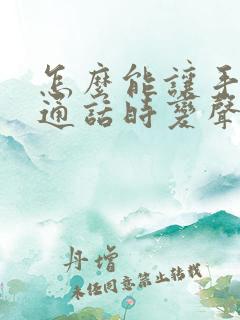 怎麼能讓手
通話時變聲
丹增
未经同意禁止转载